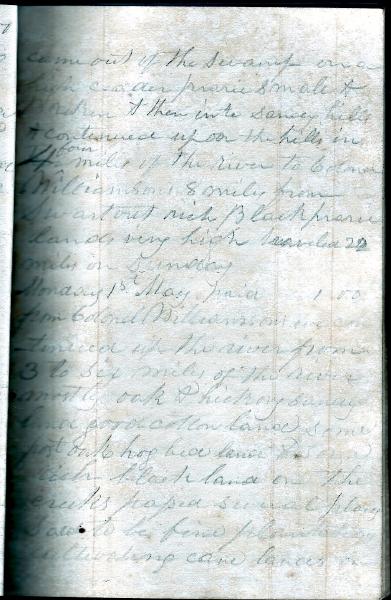 came out of the swamp on a
rich ceader prairie small &
broken & then into sandy hills
& continued upon the hills in
4 miles of the river to Colonel
Williamsons 8 miles from
Swartout rich Black prairie
lands very high traveled 22
miles on Sunday
Monday 1st May paid 1 00
from Colonel Williamsons we con
tinued up the river from
3 to six miles of the river
mostly oak & hickory sandy
land good cotton land some
post oak hog bed land & some
rich black land on the
creeks passed several places
Said to be fine plantations
cultivating cane lands on